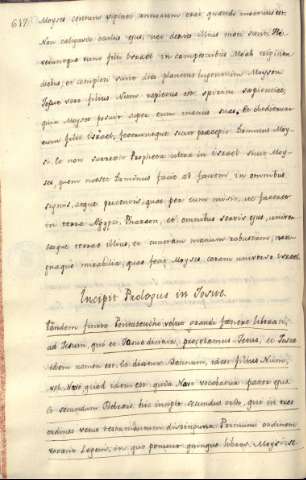 647
Moyses centum viginti annorum erat quando mortuus est
Non caligavit oculus ejus, nec dentes illius moti sunt. Fle
veruntque eum filii Israel in campestribus Moab triginta
diebus, et completi sunt dies planctus lugentium Moysen
Josue vero filius Nun repletus est spiritu sapientiae,
quia Moyses posuit super eum manus suas. Et obedierunt
eum filii Israel, feceruntque sicut praecepit Dominus Moy-
si. Et non surrexit Propheta ultra in Israel sicut Moy-
ses, quem nosset Dominus facie ad faciem in omnibus
signis, atque portentis, quae per eum misit, ut faceret
in terra Aegypti Pharaoni, et omnibus servis ejus, univer-
saeque terrae illius, et cunctam manum robustam, mag-
naque mirabilia, quae fecit Moyses coram universo Israel
Incipit Prologus in Josue.
Tandem finito Pentateucho velut grandi faenore liberati,
ad Jesum, qui et
idem nomen est. Id dicitur Dominum, idest filius Numi,
quod idem est quia Nave vocabatur pater ejus
et secundum Hebreos, hic incipit secundus ordo, qui in tres
ordines vetus testamentum distinguunt. Primum ordinem
vocant Legem, in quo ponunt quinque libros Moysi. Se